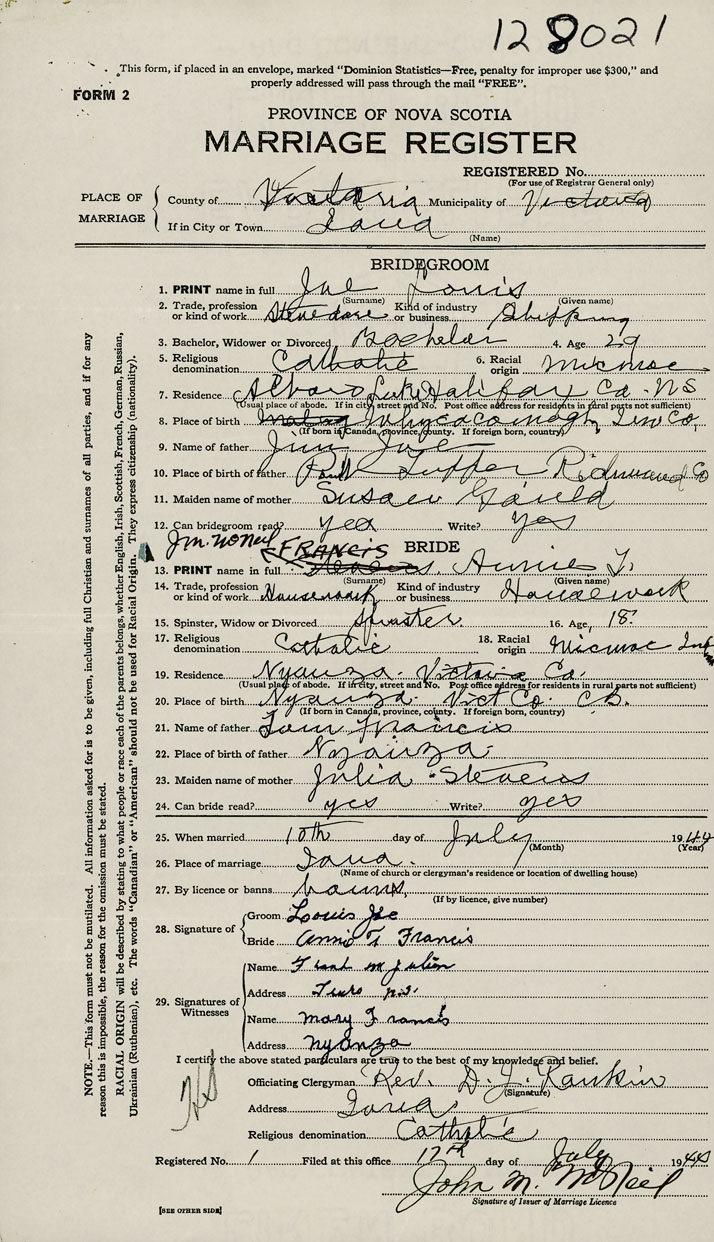 128021
This form, if placed in an envelope, marked "Dominion Statistics—Free, penalty for improper use $300," and
properly addressed will pass through the mail "FREE".
FORM 2
PROVINCE OF NOVA SCOTIA
MARRIAGE REGISTER
REGISTERED No.
(For use of Registrar General only)
PLACE OF MARRIAGE
County of Victoria Municipality of Victoria
If in City or Town Iona
(Name)
BRIDEGROOM
1. PRINT name in full Joe Louis
(Surname) (Given name)
2. Trade, profession or kind of work Stevedore Kind of industry or business Shipping
3. Bachelor, Widower or Divorced Bachelor 4. Age 29
5. Religious denomination Catholic 6. Racial origin Micmac
7. Residence Lake Halifax Co. N S
(Usual place of abode. If in city, street and No. Post office address for residents in rural parts not sufficient)
8. Place of birth Whycocomagh, Inv Co,
(If born in Canada, province, county. If foreign born, country)
9. Name of father Jim Joe
10. Place of birth of father Richmond Co
11. Maiden name of mother Susan Gould
12. Can bridegroom read? yes Write? yes
J m. McNeil
BRIDE
13. PRINT name in full FRANCIS Annie T.
(Surname) (Given name)
14. Trade, profession or kind of work Housework Kind of industry or business Housework
15. Spinster, Widow or Divorced Spinster 16. Age, 18
17. Religious denomination Catholic 18. Racial origin Micmac Ind
19. Residence Nyanza Victoria Co.
(Usual place of abode. If in city, street and No. Post office address for residents in rural parts not sufficient)
20. Place of birth Nyanza Vict Co. C B.
(If born in Canada, province, county. If foreign born, country)
21. Name of father Tom Francis
22. Place of birth of father Nyanza
23. Maiden name of mother Julia Stevens
24. Can bride read? yes Write? yes
25. When married 10th day of July 1944
(Month) (Year)
26. Place of marriage Iona.
(Name of church or clergyman's residence or location of dwelling house)
27. By licence or banns banns,
(If by licence, give number)
28. Signature of
Groom Louis Joe
Bride Annie T Francis
29. Signatures of Witnesses
Name m Julien
Address Truro N.S.
Name Mary Francis
Address Nyanza
I certify the above stated particulars are true to the best of my knowledge and belief.
Officiating Clergyman Rev. D. J. Rankin
(Signature)
Address Iona
Religious denomination Catholic
Registered No. 1 Filed at this office 17th day of July 1944
John M. McNeil
Signature of Issuer of Marriage Licence
[SEE OTHER SIDE]
NOTE.—This form must not be mutilated. All information asked for is to be given, including full Christian and surnames of all parties, and if for any
reason this is impossible, the reason for the omission must be stated.
RACIAL ORIGIN will be described by stating to what people or race each of the parents belongs, whether English, Irish, Scottish, French, German, Russian,
Ukrainian (Ruthenian), etc. The words "Canadian" or "American" should not be used for Racial Origin. They express citizenship (nationality).